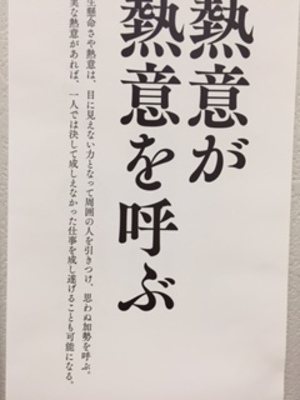 熱意が
熱意を呼ぶ
生懸命さや熱意は、目に見えない力となって周囲の人を引きつけ、思わぬ加勢を呼ぶ。
な熱意があれば、一人では決して成しえなかった仕事を成し遂げることも可能になる。